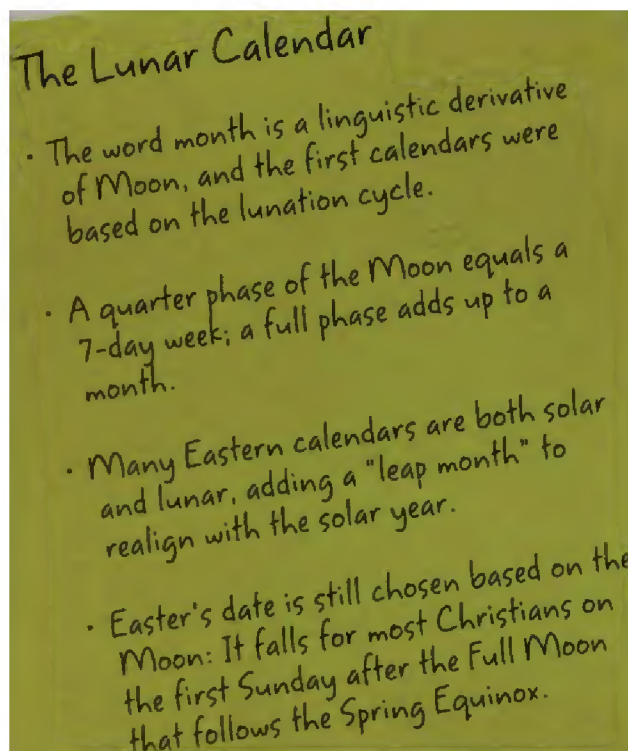 The Lunar Calendar
· The word month is a linguistic derivative
of Moon, and the first calendars were
based on the lunation cycle.
· A quarter phase of the Moon equals a
7-day week; a full phase adds up to a
month.
· Many Eastern calendars are both solar
and lunar, adding a "leap month" to
realign with the solar year.
· Easter's date is still chosen based on the
Moon: It falls for most Christians on
the first Sunday after the Full Moon
that follows the Spring Equinox.